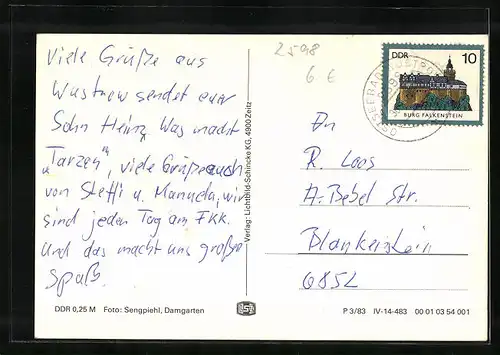 Viele Grüße aus
Wustrow sendet euer
Sohn Heinz, Was macht
"Tarzan", viele Grüße auch
von Steffi u. Manuela, wir
sind jeden Tag am FKK.
Und das macht uns großen
Spaß.
2598
6 €
DDR 10
BURG FALKENSTEIN
OSTSEEBAD
An
R. Loos
A.-Bebel Str.
Blankenstein
6852
Verlag: Lichtbild-Schincke KG, 4900 Zeitz
DDR 0,25 M Foto: Sengpiehl, Damgarten
P 3/83 IV-14-483 00 01 03 54 001